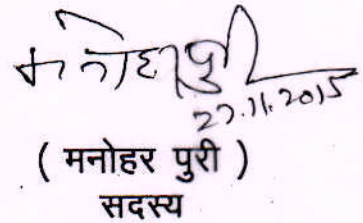 मनोहर पुरी
27.11.2015
( मनोहर पुरी )
सदस्य